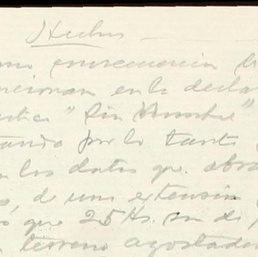 Hechos
como consecuencia de
cionan en la decla
"Sin Nombre"
tando por lo tanto
los datos que obra
de una extensión
que 25 Hs. son de
terreno agostader